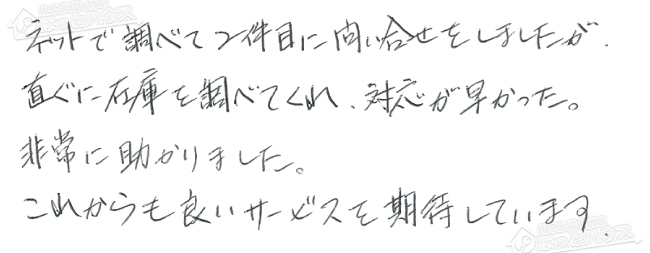 ネットで調べて2件目に問い合せをしましたが、
直ぐに在庫を調べてくれ、対応が早かった。
非常に助かりました。
これからも良いサービスを期待しています。